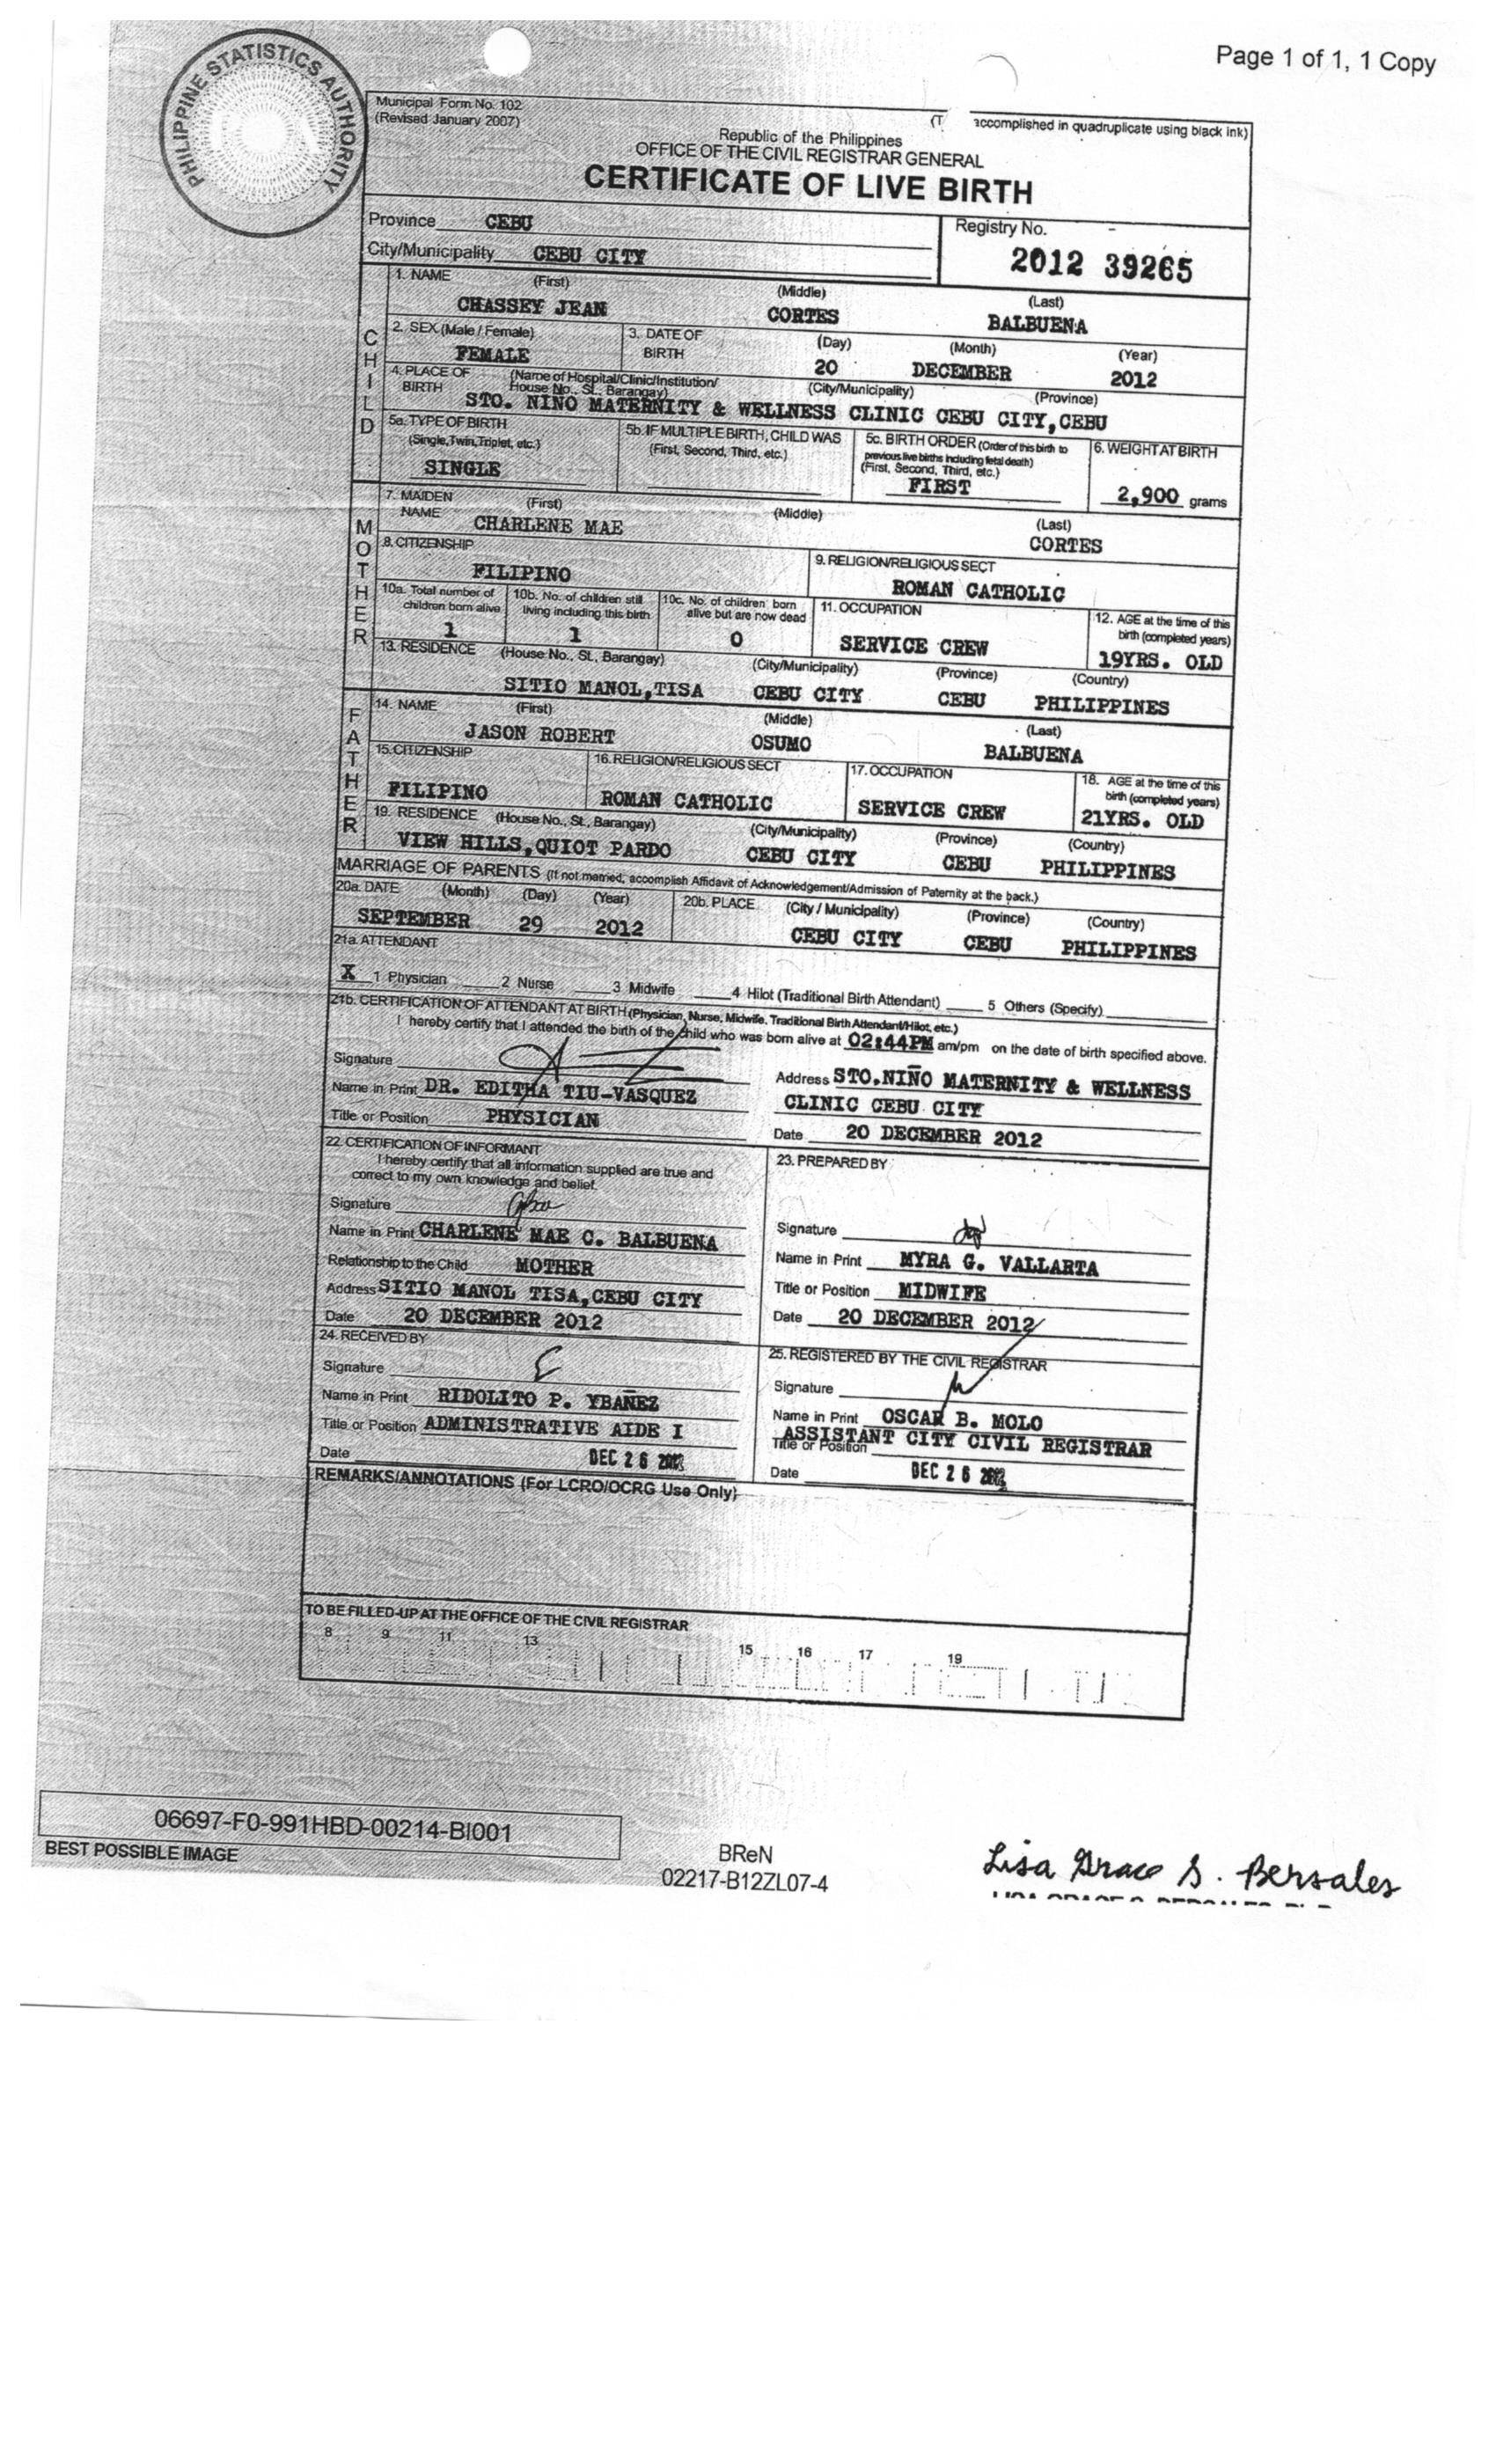 Page 1 of 1, 1 Copy
PHILIPPINE STATISTICS AUTHORITY
Municipal Form No. 102
(Revised January 2007)
accomplished in quadruplicate using black ink)
Republic of the Philippines
OFFICE OF THE CIVIL REGISTRAR GENERAL
CERTIFICATE OF LIVE BIRTH
Province CEBU
Registry No.
City/Municipality CEBU CITY
2012 39265
CHILD
1. NAME (First) (Middle) (Last)
CHASSEY JEAN CORTES BALBUENA
2. SEX (Male / Female) 3. DATE OF BIRTH (Day) (Month) (Year)
FEMALE 20 DECEMBER 2012
4. PLACE OF BIRTH (Name of Hospital/Clinic/Institution/ House No., St., Barangay) (City/Municipality) (Province)
STO. NINO MATERNITY & WELLNESS CLINIC CEBU CITY,CEBU
5a. TYPE OF BIRTH (Single, Twin, Triplet, etc.) 5b. IF MULTIPLE BIRTH, CHILD WAS (First, Second, Third, etc.) 5c. BIRTH ORDER (Order of this birth to previous live births including fetal death) (First, Second, Third, etc.) 6. WEIGHT AT BIRTH
SINGLE FIRST 2,900 grams
MOTHER
7. MAIDEN NAME (First) (Middle) (Last)
CHARLENE MAE CORTES
8. CITIZENSHIP 9. RELIGION/RELIGIOUS SECT
FILIPINO ROMAN CATHOLIC
10a. Total number of children born alive 10b. No. of children still living including this birth 10c. No. of children born alive but are now dead 11. OCCUPATION 12. AGE at the time of this birth (completed years)
1 1 0 SERVICE CREW 19YRS. OLD
13. RESIDENCE (House No., St., Barangay) (City/Municipality) (Province) (Country)
SITIO MANOL,TISA CEBU CITY CEBU PHILIPPINES
FATHER
14. NAME (First) (Middle) (Last)
JASON ROBERT OSUMO BALBUENA
15. CITIZENSHIP 16. RELIGION/RELIGIOUS SECT 17. OCCUPATION 18. AGE at the time of this birth (completed years)
FILIPINO ROMAN CATHOLIC SERVICE CREW 21YRS. OLD
19. RESIDENCE (House No., St., Barangay) (City/Municipality) (Province) (Country)
VIEW HILLS,QUIOT PARDO CEBU CITY CEBU PHILIPPINES
MARRIAGE OF PARENTS (If not married, accomplish Affidavit of Acknowledgement/Admission of Paternity at the back.)
20a. DATE (Month) (Day) (Year) 20b. PLACE (City / Municipality) (Province) (Country)
SEPTEMBER 29 2012 CEBU CITY CEBU PHILIPPINES
21a. ATTENDANT
X 1 Physician 2 Nurse 3 Midwife 4 Hilot (Traditional Birth Attendant) 5 Others (Specify)
21b. CERTIFICATION OF ATTENDANT AT BIRTH (Physician, Nurse, Midwife, Traditional Birth Attendant/Hilot, etc.)
I hereby certify that I attended the birth of the child who was born alive at 02:44PM am/pm on the date of birth specified above.
Signature
Address STO.NIÑO MATERNITY & WELLNESS
Name in Print DR. EDITHA TIU-VASQUEZ
CLINIC CEBU CITY
Title or Position PHYSICIAN
Date 20 DECEMBER 2012
22. CERTIFICATION OF INFORMANT
I hereby certify that all information supplied are true and
correct to my own knowledge and belief.
Signature
Name in Print CHARLENE MAE C. BALBUENA
Relationship to the Child MOTHER
Address SITIO MANOL TISA,CEBU CITY
Date 20 DECEMBER 2012
23. PREPARED BY
Signature
Name in Print MYRA G. VALLARTA
Title or Position MIDWIFE
Date 20 DECEMBER 2012
24. RECEIVED BY
Signature
Name in Print RIDOLITO P. YBAÑEZ
Title or Position ADMINISTRATIVE AIDE I
Date DEC 26 2012
25. REGISTERED BY THE CIVIL REGISTRAR
Signature
Name in Print OSCAR B. MOLO
ASSISTANT CITY CIVIL REGISTRAR
Title or Position
Date DEC 26 2012
REMARKS/ANNOTATIONS (For LCRO/OCRG Use Only)
TO BE FILLED-UP AT THE OFFICE OF THE CIVIL REGISTRAR
8 9 11 13 15 16 17 19
06697-F0-991HBD-00214-BI001
BEST POSSIBLE IMAGE
BReN
02217-B12ZL07-4
Lisa Grace S. Bersales